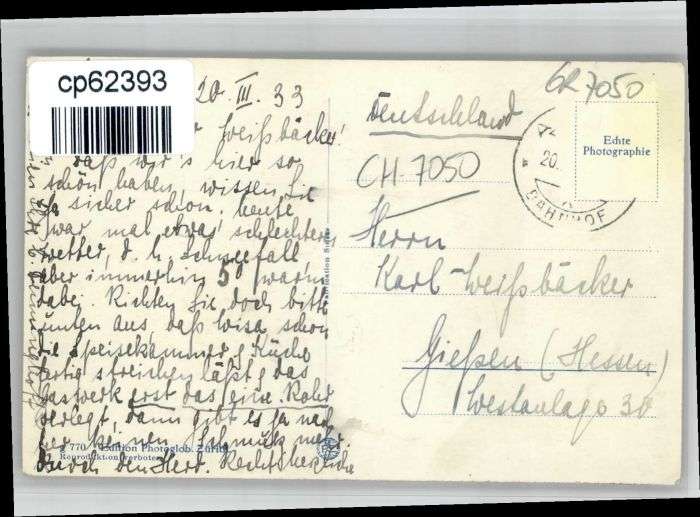 cp62393
20. III. 33
Weißbäcker!
daß wir's hier so
schön haben, wissen Sie
ja sicher schon. heute
war mal etwas schlechteres
wetter, d. h. Schneefall
aber immerhin 5° warm
dabei. Richten Sie doch bitte
unten aus, daß
die Speisekammer & Küche
fertig streichen läßt & das
Gaswerk erst das Rohr
verlegt, dann gibt es ja nach
her keinen Schmutz mehr.
durch den Herd.
770 Edition Photoglob, Zürich
Reproduktion verboten
GR 7050
Deutschland
Echte
Photographie
20.
BAHNHOF
CH-7050
Herrn
Karl Weißbäcker
Gießen (Hessen)
Westanlage 30